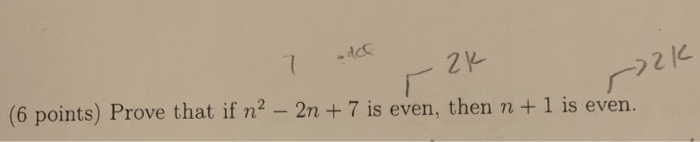 7 odd 2K →2K
(6 points) Prove that if n² − 2n + 7 is even, then n + 1 is even.